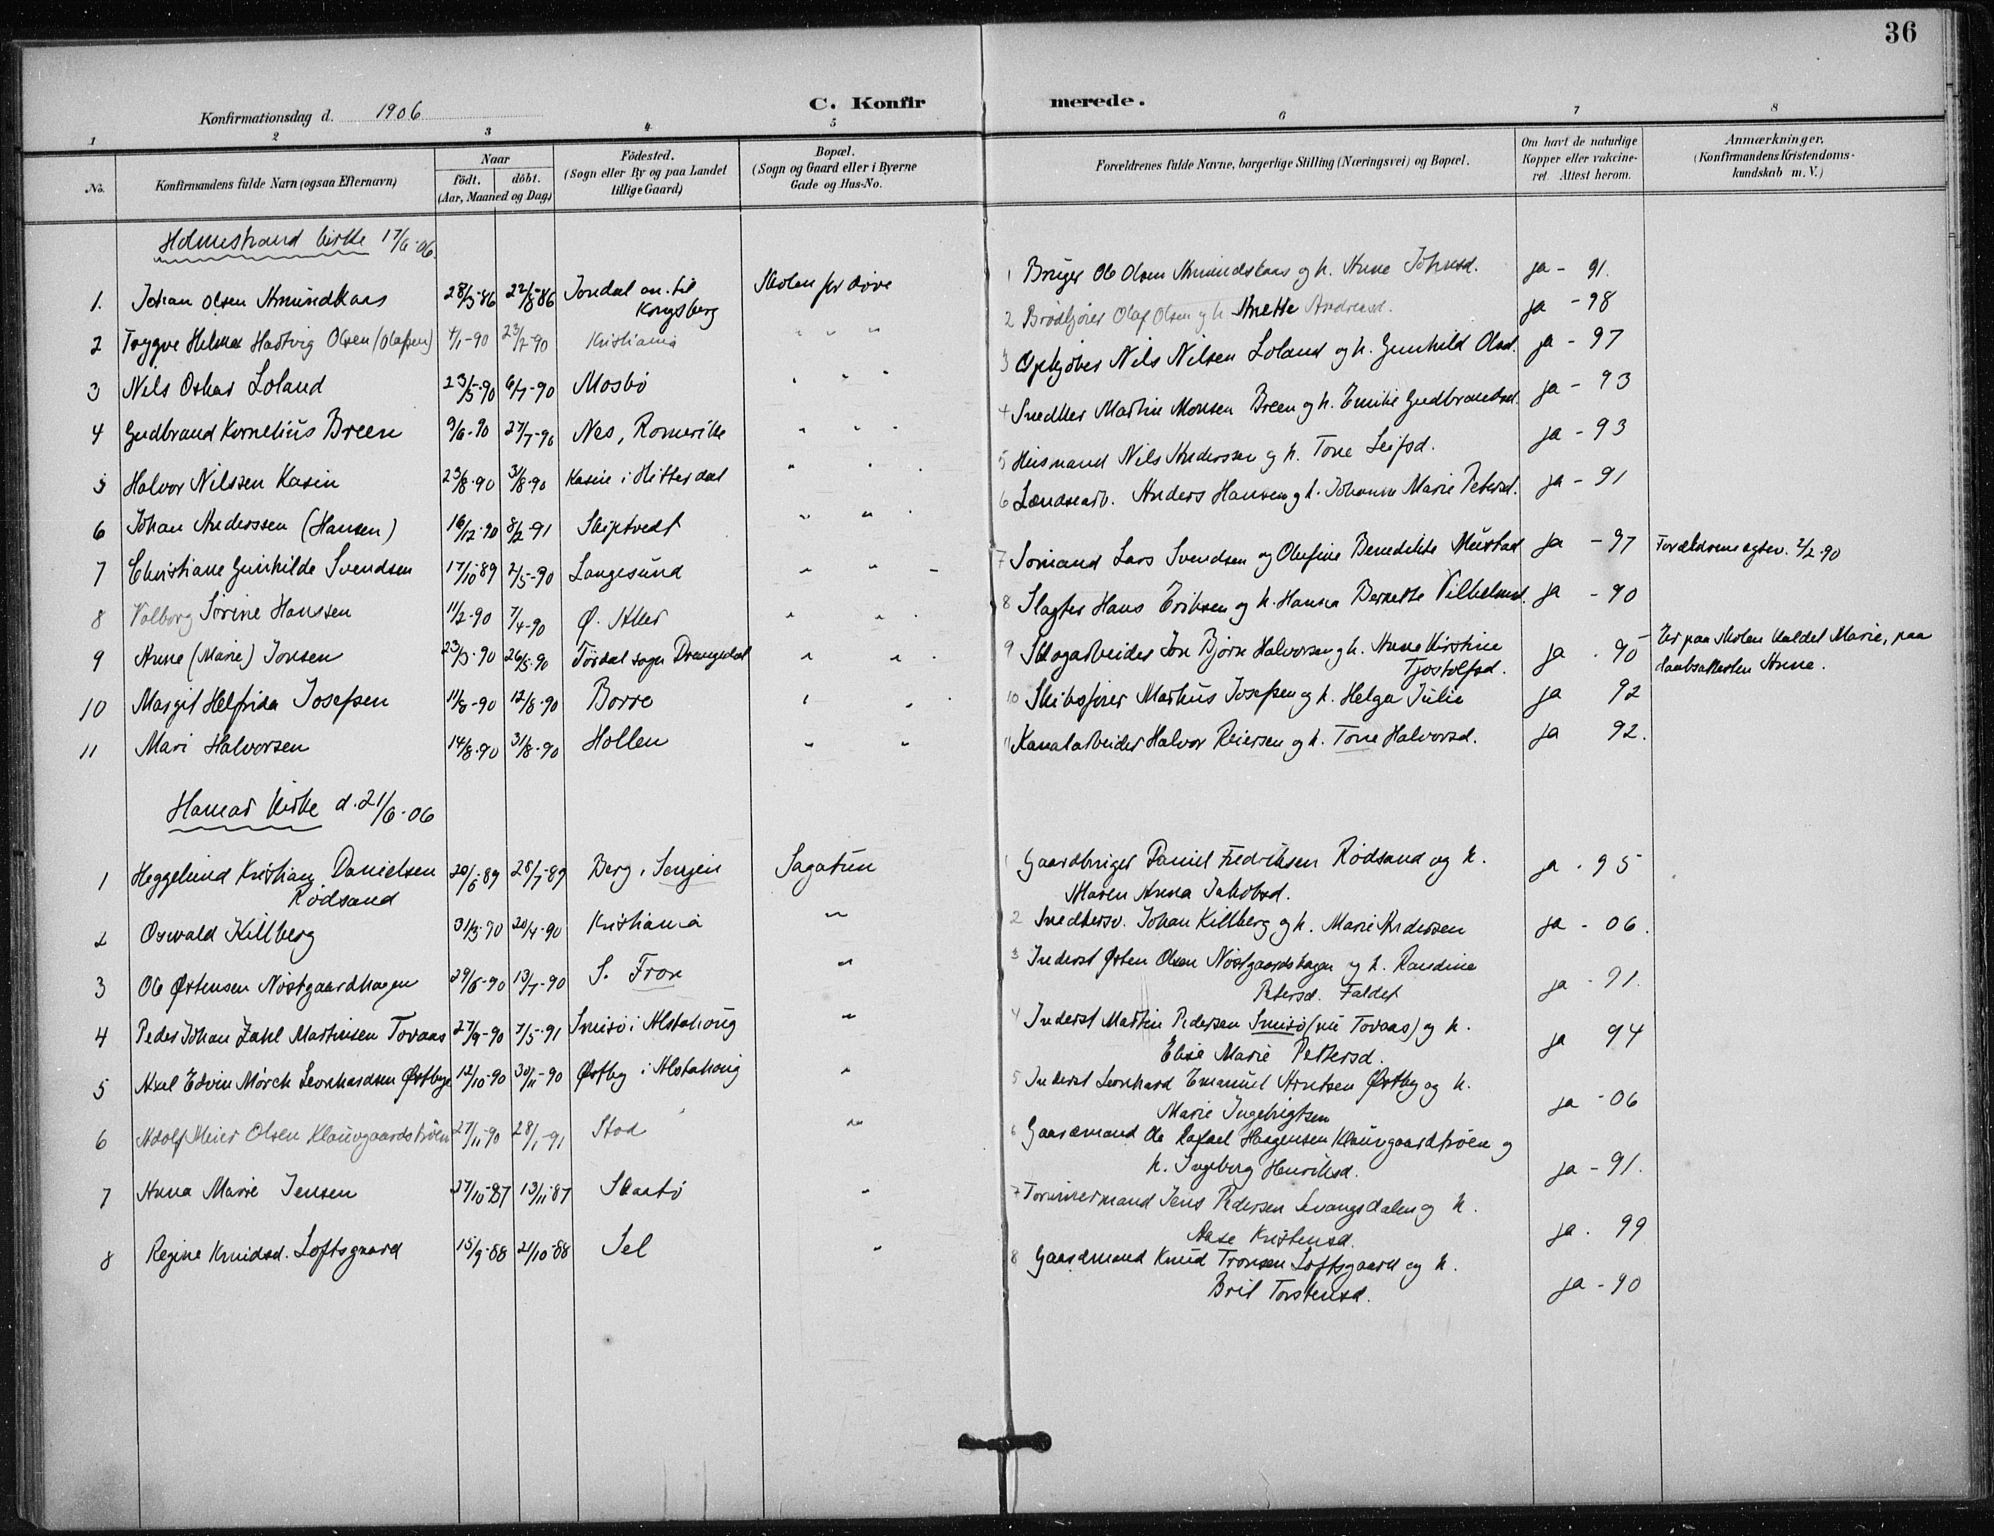 36
C. Konfirmerede.
Konfirmationsdag d. 1906
1 2 3 4 5 6 7 8
No.
Konfirmandens fulde Navn (ogsaa Efternavn)
Naar
født. døbt.
(Aar, Maaned og Dag)
Fødested.
(Sogn eller By og paa Landet
tillige Gaard)
Bopæl.
(Sogn og Gaard eller i Byerne
Gade og Hus-No.
Forældrenes fulde Navne, borgerlige Stilling (Næringsvei) og Bopæl.
Om havt de naturlige
Kopper eller vakcine-
ret. Attest herom.
Anmærkninger.
(Konfirmandens Kristendoms-
kundskab m. V.)
Holmestrand kirke 17/6-06.
1. Johan Olsen Amundkaas 28/3-86 22/8-86 Jondal an. til Kongsberg Skolen for døve 1 Bruger Ole Olsen Amundskaas og h. Anne Johnsd. ja - 91.
2 Trygve Helmer Hartvig Olsen (Olafsen) 4/1-90 23/2-90 Kristiania " " " 2 Brødkjører Olaf Olsen og h. Anette Andreasd. ja - 98
3 Nils Oskar Loland 23/5-90 6/7-90 Mosbø " " " 3 Opkjøber Nils Nilsen Loland og h. Gunhild Olsd. ja - 97
4 Gudbrand Kornelius Breen 9/6-90 27/7-90 Nes, Romerike " " " 4 Snedker Martin Monsen Breen og h. Emilie Gudbrandsd. ja - 93
5 Halvor Nilssen Kasin 23/8-90 31/8-90 Kasin i Hitterdal " " " 5 Husmand Nils Anderssen og h. Tone Leifsd. ja - 93
6 Johan Anderssen (Hansen) 16/12-90 8/2-91 Skiptvedt " " " 6 Lændsearb. Anders Hansen og h. Johanne Marie Petersd. ja - 91
7 Christiane Gunhilde Svendsen 17/10-89 2/5-90 Langesund " " " 7 Sømand Lars Svendsen og Olufine Benedikte Mustad ja - 97 Forældrene egtev. 2/2-90
8 Valborg Sørine Hanssen 11/2-90 7/4-90 Ø. Aker " " " 8 Slagter Hans Eriksen og h. Hanna Bernette Vilhelmsd. ja - 90
9 Anne (Marie) Jonsen 23/3-90 26/5-90 Tørdal sogn Drangedal " " " 9 Skogarbeider Jon Bjørn Halvorsen og h. Anne Kirstine Tjostolfsd. ja - 90 Er paa skolen kaldet Marie, paa daabsattesten Anne.
10 Margit Helfrida Josefsen 11/3-90 12/8-90 Borre " " 10 Skibsfører Markus Josefsen og h. Helga Julie ja 92
11 Mari Halvorsen 14/8-90 31/8-90 Hollen " " 11 Kanalarbeider Halvor Reiersen og h. Tone Halvorsd. ja 92.
Hamar kirke d. 21/6-06
1 Heggelund Kristian Danielsen Rødsand 20/6-89 28/7-89 Berg i Senjen Sagatun 1 Gaardbruger Daniel Fredriksen Rødsand og h. Maren Anna Jakobsd. ja - 95
2 Oswald Killberg 31/3-90 20/4-90 Kristiania " 2 Snedkersv. Johan Killberg og h. Marie Andersen ja - 06.
3 Ole Østensen Nøstgaardhagen 29/6-90 13/7-90 S. Fron " 3 Inderst Østen Olsen Nøstgaardshagen og h. Randine Petersd. Faldet ja - 91.
4 Peder Johan Zahl Martinsen Tovaas 27/9-90 7/5-91 Smisø i Alstahoug " 4 Inderst Martin Pedersen Smisø (nu Tovaas) og h. Elise Marie Pettersd. ja 94
5 Axel Edvin Mørch Leonhardsen Østbye 12/10-90 30/11-90 Østby i Alstahoug " 5 Inderst Leonhard Emanuel Arntsen Østby og h. Marie Ingebrigtsen ja - 06
6 Adolf Meier Olsen Klauvgaardstrøen 27/11-90 28/1-91 Stod " 6 Gaardmand Ole Rafael Haagensen Klauvgaardtrøen og h. Ingeborg Henriksd. ja - 91.
7 Anna Marie Jensen 27/10-87 13/11-87 Skaatø " 7 Tømmermand Jens Pedersen Levangsdalen og h. Aase Kristensd. ja. 99
8 Regine Knudsd. Loftsgaard 15/9-88 21/10-88 Sel " 8 Gaardmand Knud Tronsen Loftsgaard og h. Brit Torstensd. ja - 90